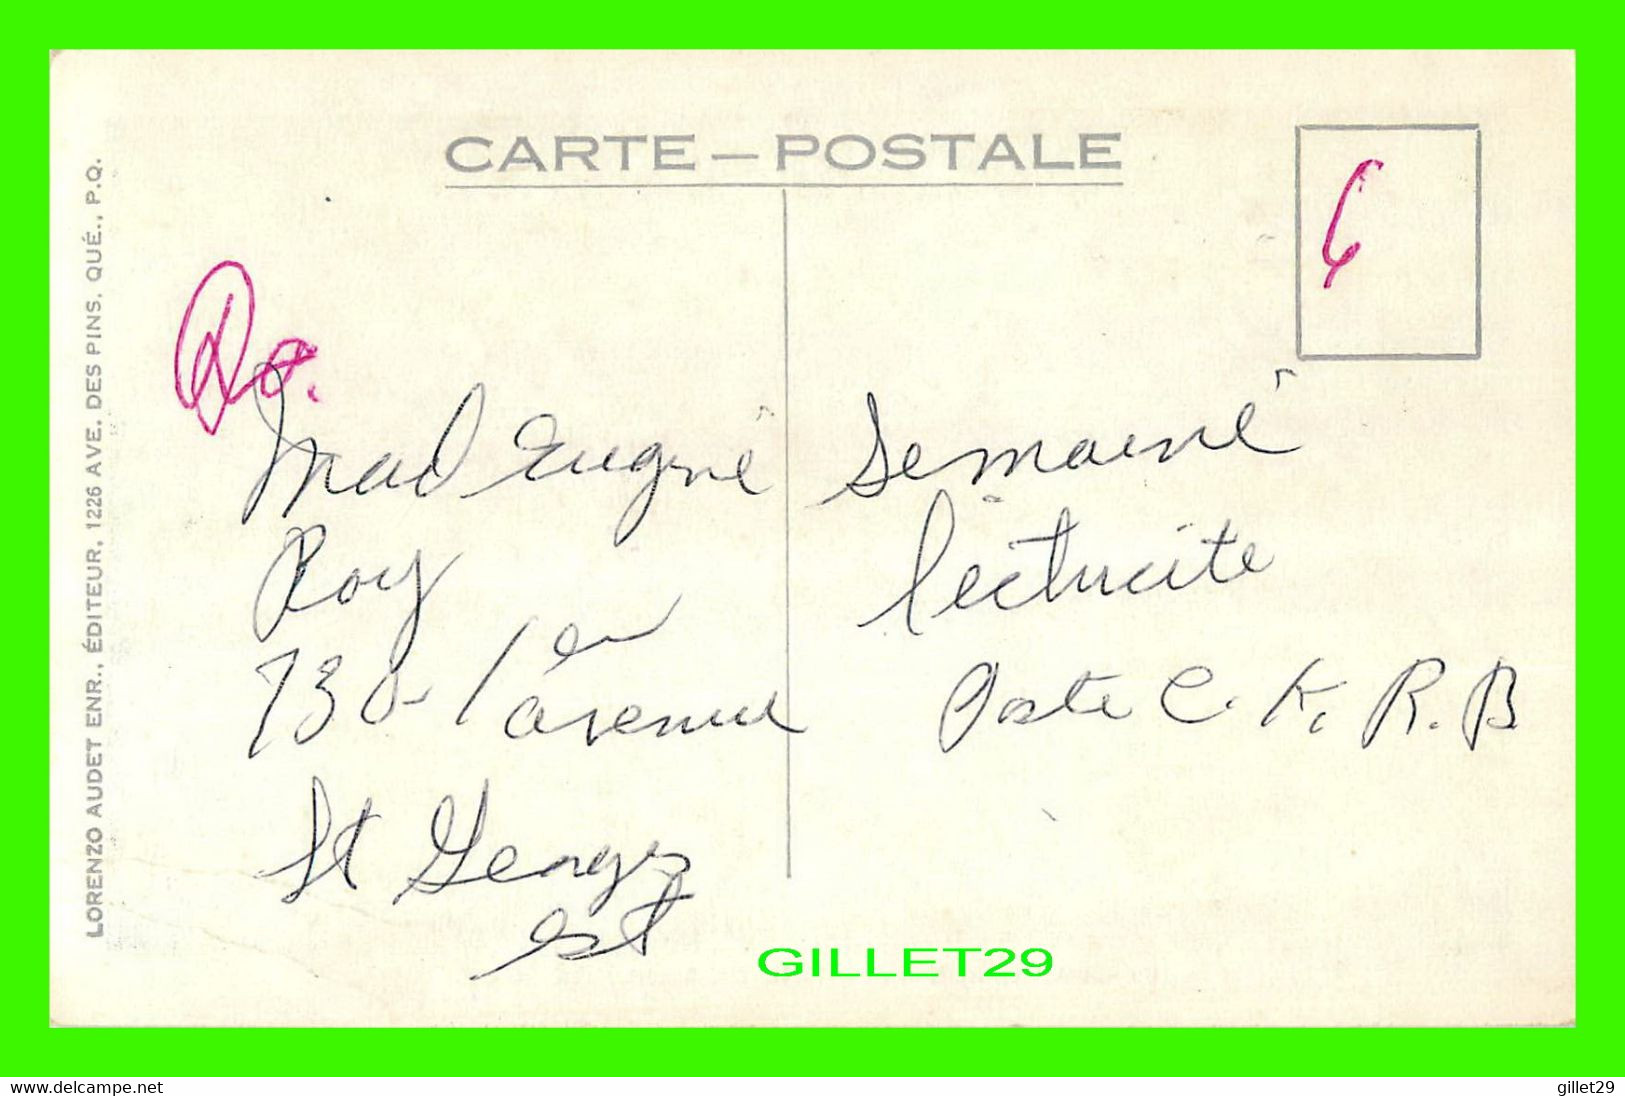 CARTE — POSTALE
LORENZO AUDET ENR., ÉDITEUR, 1226 AVE. DES PINS, QUÉ., P.Q.
6
Mad Eugène
Roy
730 - 1er avenue
St Georges
est
Semaine
l'ectricite
Poste C. K. R. B
GILLET29
delcampe.net
gillet29